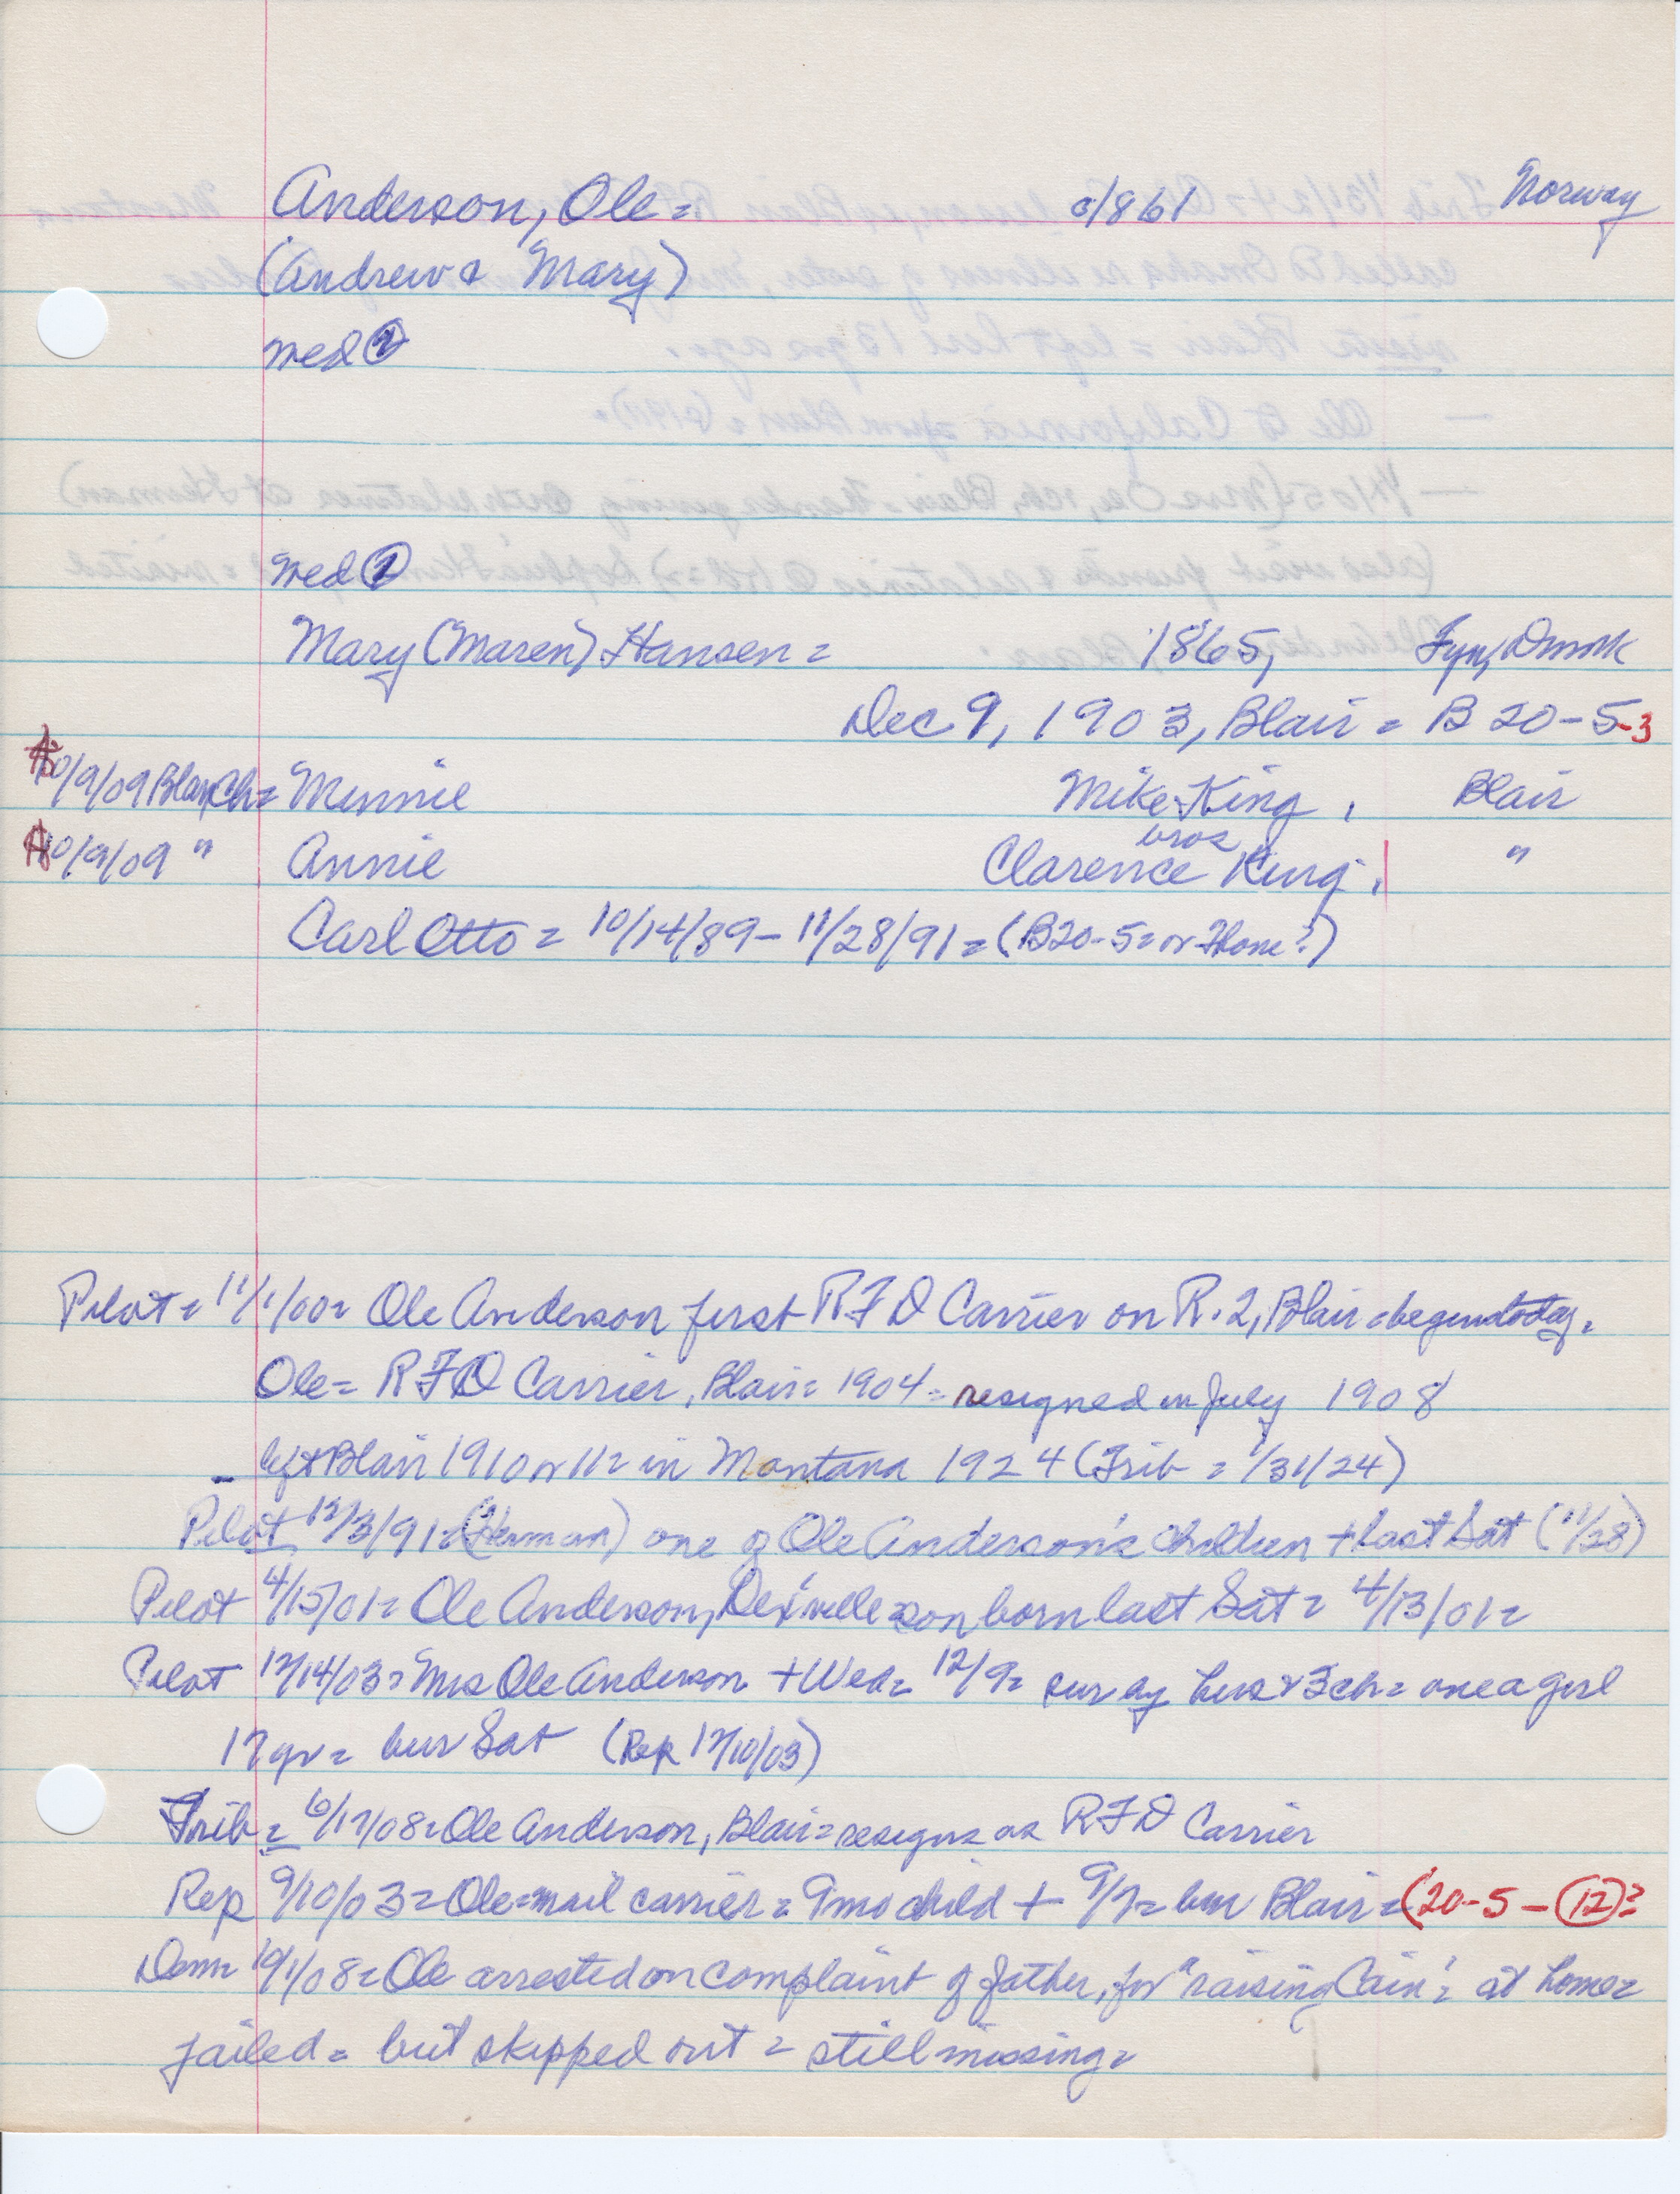 Anderson, Ole = c/1861 Norway
(Andrew & Mary)
wed ②
wed ①
Mary (Maren) Hansen = 1865, Fyn, Dmrk
Dec 9, 1903, Blair = B 20-5-3
10/9/09 Blair Ch = Minnie Mike King, Blair
bros
10/9/09 " Annie Clarence King, "
Carl Otto = 10/14/89 - 11/28/91 = (B20-5 = or Home?)
Pilot = 11/1/00 = Ole Anderson first RFD Carrier on R.2, Blair = begun today =
Ole = RFD Carrier, Blair = 1904 = resigned in July 1908
— left Blair 1910 or 11 = in Montana 1924 (Trib = 1/31/24)
Pilot 12/3/91 = (Herman) one of Ole Anderson's children + last Sat (11/28)
Pilot 4/15/01 = Ole Anderson, = son born last Sat = 4/13/01 =
Pilot 12/14/03 = Mrs Ole Anderson + Wed = 12/9 = sur by hus & 3 ch = one a girl
17 yr = bur Sat (Rep 12/10/03)
Trib = 6/17/08 = Ole Anderson, Blair = resigns as RFD Carrier
Rep 9/10/03 = Ole = mail carrier = 9 mo child + 9/7 = bur Blair = (20-5-⑫)?
Dem = /08 = Ole arrested on complaint of father, for "raising Cain" = at home =
jailed = but skipped out = still missing =